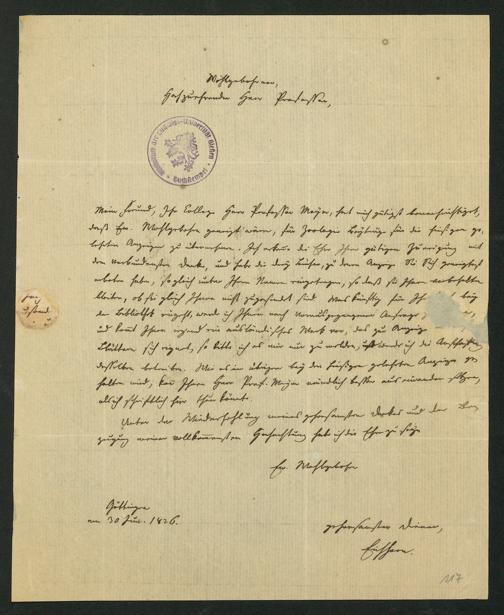 Wohlgebohrner,
Hochzuehrender Herr Professor,
Mein Freund, Ihr College Herr Professor Mayer, hat mich gütigst benachrichtiget,
daß Ew. Wohlgebohren geneigt wären, für Zoologie Beyträge für die hiesigen ge-
lehrten Anzeigen zu übernehmen. Ich erkenne die Ehre Ihrer gütigen
den verbindlichsten Dank, und habe die drey Bücher, zu deren Anzeige Sie Sich geneigtest
erboten haben, sogleich unter Ihrem Namen eingetragen, so daß sie Ihnen vorbehalten
bleiben, ob sie gleich Ihnen nicht zugesandt sind. Was künftig für Ihr bey
der Bibliothek eingeht, werde ich Ihnen nach vorausgegangener Anfrage
und kömt Ihnen irgend ein ausländisches Werk vor, das zu Anzeige
Blättern sich eignet, so bitte ich es mir nur zu melden, ich die Anschaffung
desselben betreiben. Wie es im übrigen bey den hiesigen gelehrten Anzeigen ge-
halten wird, kan Ihnen Herr Prof. Mayer mündlich besser aus einander setzen,
als ich schriftlich hier thun könnte.
Unter der Wiederhohlung meines gehorsamsten Dankes und der Be-
zeugung meiner vollkommensten Hochachtung habe ich die Ehre zu seyn
Ew. Wohlgebohren
Göttingen
am 30 Jun. 1826.
gehorsamster Diener,
Eichhorn.
117